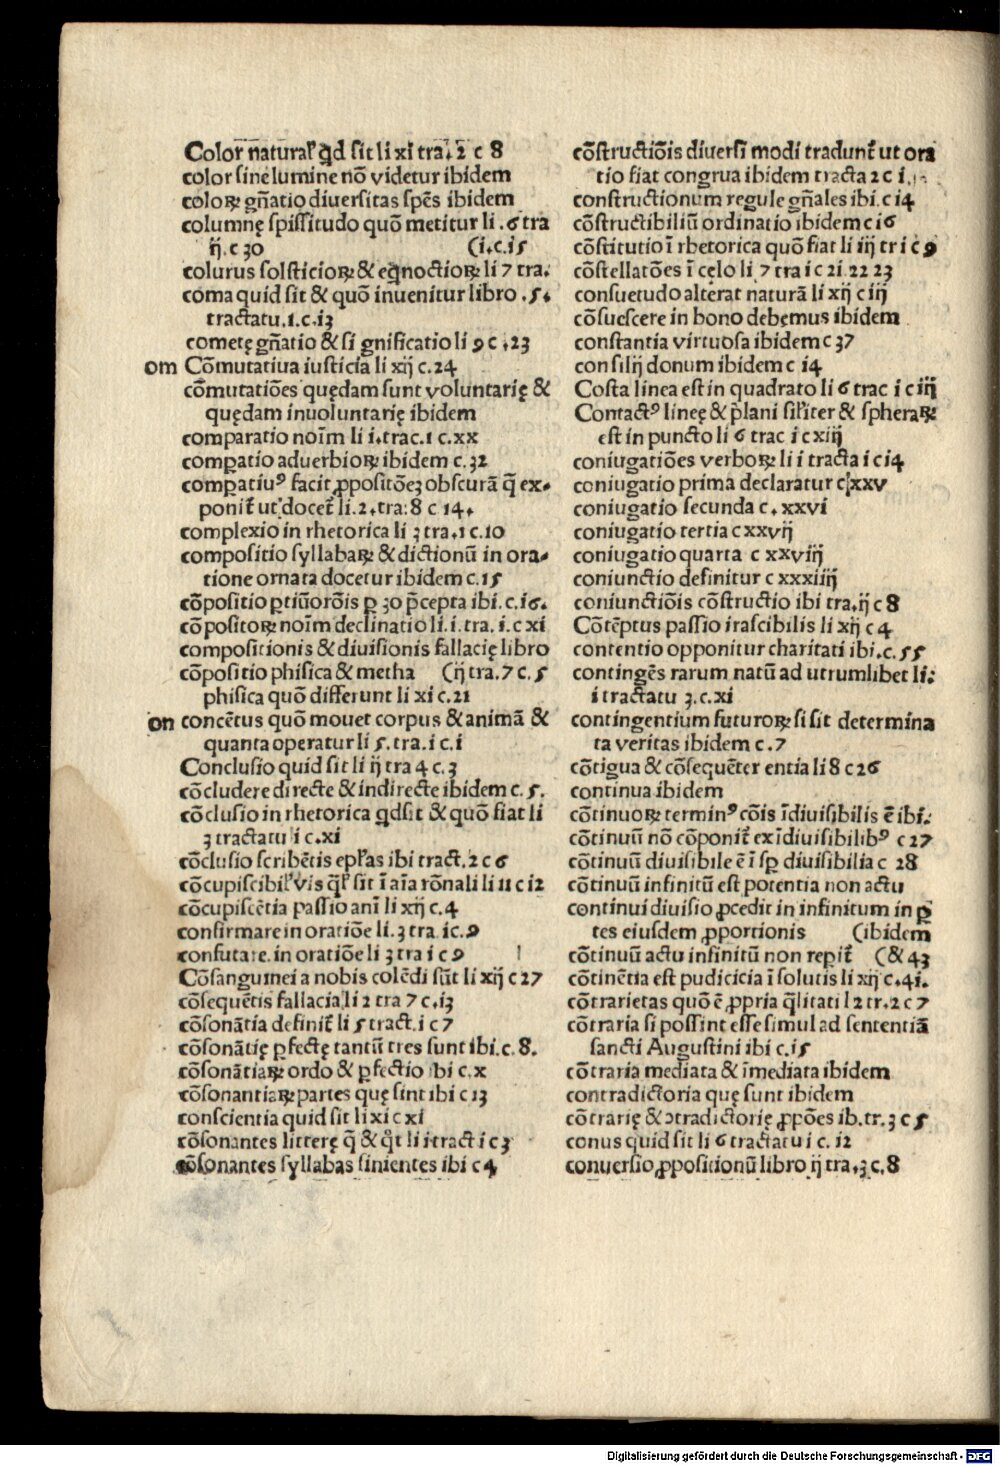 Color̄ natural̛ qd sit li xi tra. 2 c 8
color sine lumine nō videtur ibidem
coloꝝ gñatio diuersitas spēs ibidem
columnę spissitudo quō metitur li .6 tra
ij. c 30 (i.c.i5
colurus solsticioꝝ & eqnoctioꝝ li 7 tra.
coma quid sit & quō inuenitur libro .5.
tractatu.1.c.i3
cometę gñatio & si gnificatio li 9 c .23
om Cōmutatiua iusticia li xij c.24
cōmutatiōes quędam sunt voluntarię &
quędam inuoluntarię ibidem
comparatio noīm li i.trac.1 c.xx
comꝑatio aduerbioꝝ ibidem c.32
comꝑatiuꝰ facit ꝓpositōeʒ obscurā q̄ ex-
ponit᷑ ut docet᷑ li.2.tra:8 c 14.
complexio in rhetorica li 3 tra.1 c.10
compositio syllabaꝝ & dictionū in ora-
tione ornata docetur ibidem c.15
cōpositio ꝑtiū orōis ꝑ 30 p̄cepta ibi.c.i6.
cōpositoꝝ noīm declinatio li.i.tra.i.c xi
compositionis & diuisionis fallacię libro
cōpositio phisica & metha (ij tra.7 c.5
phisica quō differunt li xi c.21
on concētus quō mouet corpus & animā &
quanta operatur li 5.tra.i c.i
Conclusio quid sit li ij tra 4 c.3
cōcludere directe & indirecte ibidem c.5.
cōclusio in rhetorica qdsit & quō fiat li
3 tractatu i c.xi
cōclusio scribētis epl̛as ibi tract.2 c 6
cōcupiscibil̛ vis ql̛ sit ī aīa rōnali li 11 c i2
cōcupiscētia passio ani li xij c.4
confirmare in oratiōe li.3 tra ic.9
confutare in oratiōe li 3 tra i c 9
Cōsanguinei a nobis colēdi sūt li xij c 27
cōsequētis fallacia li 2 tra 7 c.i3
cōsonātia definit᷑ li 5 tract.i c 7
cōsonātię ꝑfectę tantū tres sunt ibi.c.8.
cōsonātiaꝝ ordo & ꝑfectio ibi c.x
cōsonantiaꝝ partes quę sint ibi c 13
conscientia quid sit li xi c xi
cōsonantes litterę q̄ & qt li i tract i c 3
cōsonantes syllabas finientes ibi c 4
cōstructiōis diuersi modi tradunt᷑ ut ora
tio fiat congrua ibidem tracta 2 c i.
constructionum regule gñales ibi.c i4
cōstructibiliū ordinatio ibidem c i6
cōstitutio ī rhetorica quō fiat li iij tr i c 9
cōstellatōes ī celo li 7 tra i c 21 22 23
consuetudo alterat naturā li xij c iij
cōsuescere in bono debemus ibidem
constantia virtuosa ibidem c 37
consilij donum ibidem c i4
Costa linea est in quadrato li 6 trac i c iij
Contactꝰ lineę & plani sil̛iter & spheraꝝ
est in puncto li 6 trac i c xiij
coniugatiōes verboꝝ li i tracta i c i4
coniugatio prima declaratur c xxv
coniugatio secunda c. xxvi
coniugatio tertia c xxvij
coniugatio quarta c xxviij
coniunctio definitur c xxxiiij
coniunctiōis cōstructio ibi tra.ij c 8
Cōtēptus passio irascibilis li xij c 4
contentio opponitur charitati ibi.c.55
contingēs rarum natū ad utrumlibet li:
i tractatu 3.c.xi
contingentium futuroꝝ si sit determina
ta veritas ibidem c.7
cōtigua & cōsequēter entia li 8 c 26
continua ibidem
cōtinuoꝝ terminꝰ cōis īdiuisibilis ē ibi:
cōtinuū nō cōponit᷑ ex īdiuisibilibꝰ c 27
cōtinuū diuisibile ē ī sp̄ diuisibilia c 28
cōtinuū infinitū est potentia non actu
continui diuisio ꝓcedit in infinitum in ꝑ
tes eiusdem ꝓportionis (ibidem
cōtinuū actu infinitū non repit᷑ (& 43
cōtinētia est pudicicia ī solutis li xij c.4i.
cōtrarietas quō ē ꝓpria q̄litati l 2 tr.2 c 7
cōtraria si possint esse simul ad sententiā
sancti Augustini ibi c.i5
cōtraria mediata & īmediata ibidem
contradictoria quę sunt ibidem
cōtrarię & ↄtradictorię ꝓpōes ib.tr.3 c 5
conus quid sit li 6 tractatu i c. i2
conuersio ꝓpositionū libro ij tra.3 c.8
Digitalisierung gefördert durch die Deutsche Forschungsgemeinschaft - DFG